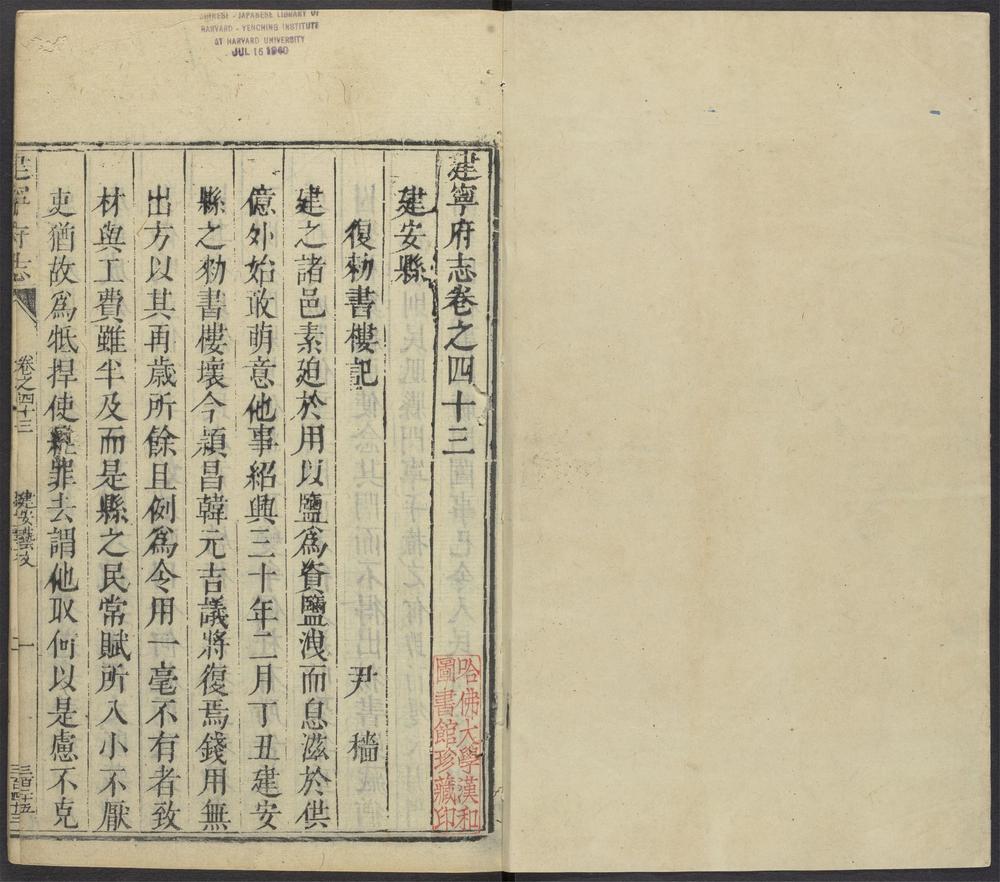 CHINESE - JAPANESE LIBRARY OF
HARVARD - YENCHING INSTITUTE
AT HARVARD UNIVERSITY
JUL 16 1940
建寧府志卷之四十三
建安縣
復勑書樓記
尹穡
建之諸邑素廹於用以鹽為資鹽洩而息滋於供
億外始敢萌意他事紹興三十年二月丁丑建安
縣之勑書樓壞今潁昌韓元吉議將復焉錢用無
出方以其再歲所餘且例為令用一毫不有者致
材與工費雖半及而是縣之民常賦所入小不厭
吏猶故為牴捍使罪去謂他取何以是慮不克
建寧府志
卷之四十三
建安藝文
一
哈佛大學漢和
圖書館珍藏印